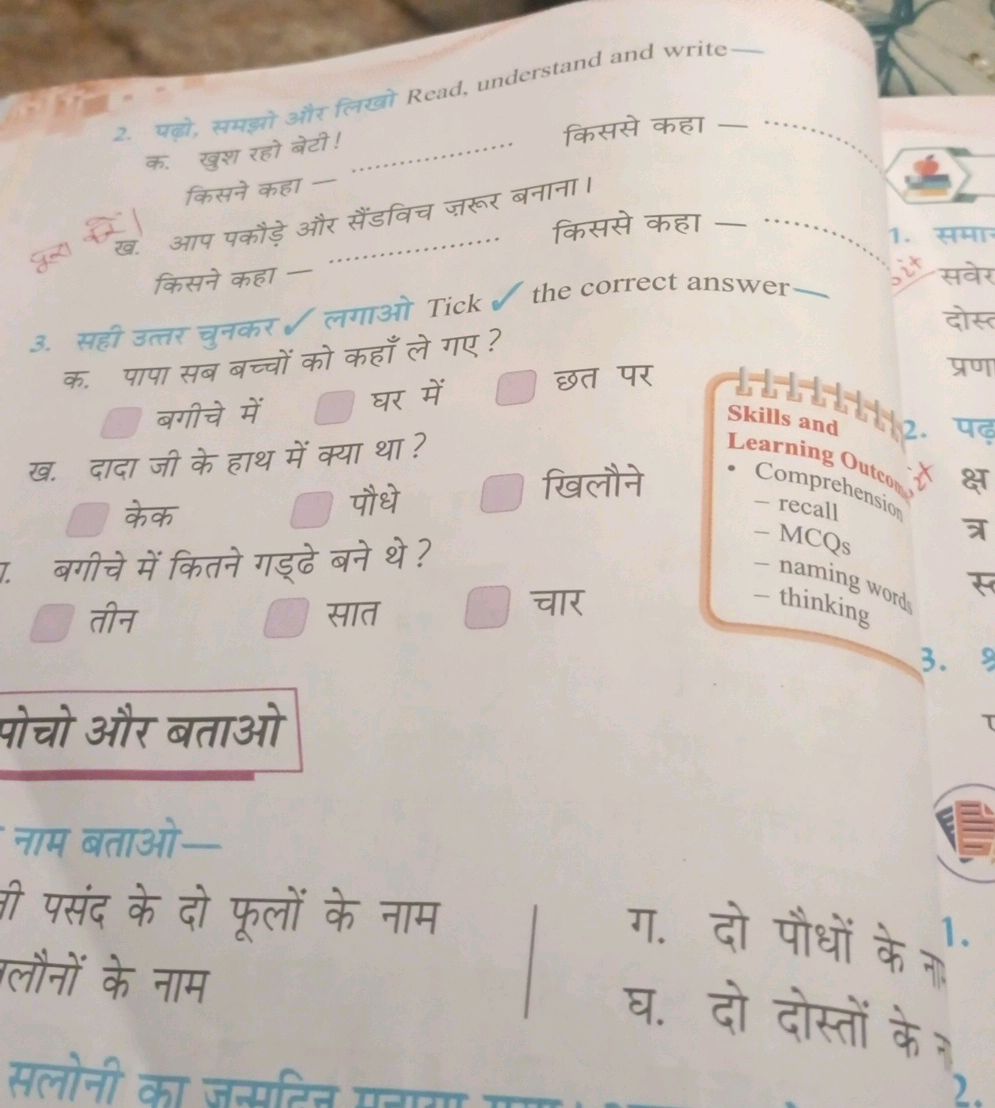 2. पढ़ो, समझो और लिखो Read, understand and write—
क. खुश रहो बेटी!
किसने कहा — .................... किससे कहा — ....................
ख. आप पकौड़े और सैंडविच ज़रूर बनाना।
किसने कहा — .................... किससे कहा — ....................
3. सही उत्तर चुनकर ✓ लगाओ Tick ✓ the correct answer—
क. पापा सब बच्चों को कहाँ ले गए?
बगीचे में घर में छत पर
ख. दादा जी के हाथ में क्या था?
केक पौधे खिलौने
बगीचे में कितने गड्ढे बने थे?
तीन सात चार
Skills and
Learning Outcom
• Comprehension
– recall
– MCQs
– naming words
– thinking
और बताओ
नाम बताओ—
पसंद के दो फूलों के नाम
के नाम
ग. दो पौधों के
घ. दो दोस्तों के
सलोनी का जन्मदिन
1.
2.
3.
क्ष
त्र
1.
2.